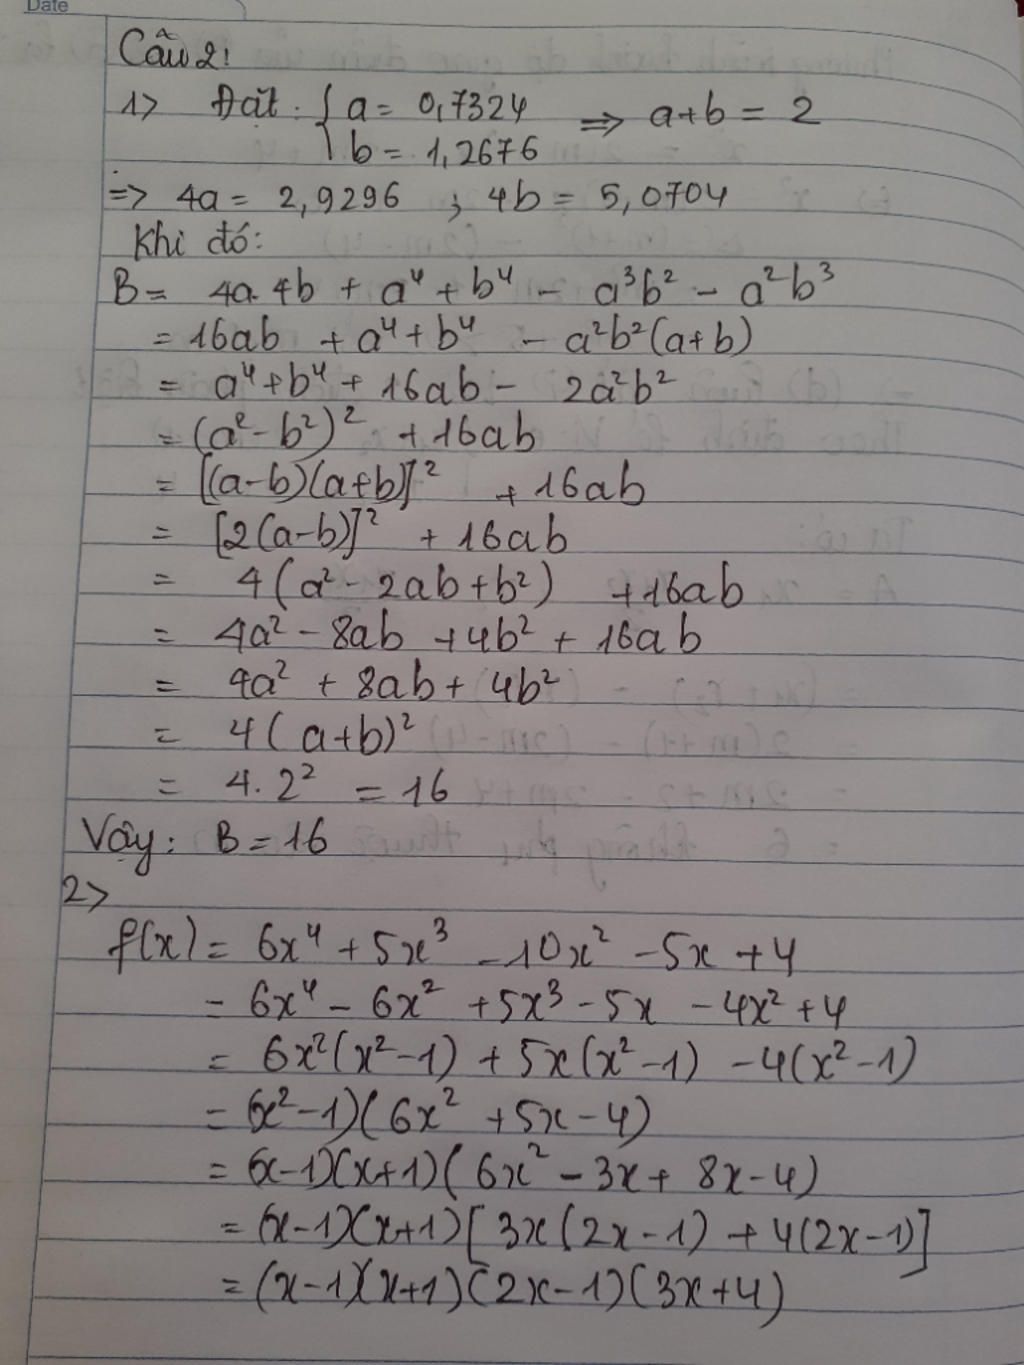 Date
Câu 2:
1> Đặt: { a = 0,7324 ⇒ a+b = 2
b = 1,2676
=> 4a = 2,9296 ; 4b = 5,0704
Khi đó:
B = 4a.4b + a⁴ + b⁴ - a³b² - a²b³
= 16ab + a⁴ + b⁴ - a²b²(a+b)
= a⁴ + b⁴ + 16ab - 2a²b²
= (a² - b²)² + 16ab
= [(a-b)(a+b)]² + 16ab
= [2(a-b)]² + 16ab
= 4(a² - 2ab + b²) + 16ab
= 4a² - 8ab + 4b² + 16ab
= 4a² + 8ab + 4b²
= 4(a+b)²
= 4.2² = 16
Vậy: B = 16
2>
f(x) = 6x⁴ + 5x³ - 10x² - 5x + 4
= 6x⁴ - 6x² + 5x³ - 5x - 4x² + 4
= 6x²(x² - 1) + 5x(x² - 1) - 4(x² - 1)
= (x² - 1)(6x² + 5x - 4)
= (x-1)(x+1)(6x² - 3x + 8x - 4)
= (x-1)(x+1)[3x(2x-1) + 4(2x-1)]
= (x-1)(x+1)(2x-1)(3x+4)